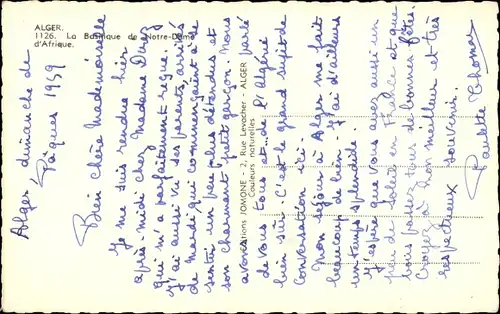 ALGER.
1126. La Basilique de Notre-Dame d'Afrique.
Alger, dimanche de
Pâques 1959
Bien chère Mademoiselle
Je me suis rendue hier
après-midi chez Madame
qui m'a parfaitement reçue.
J'ai aussi vu ses parents, arrivés
de mardi, qui commençaient à se
sentir un peu plus détendus et
son charmant petit garçon. Nous
avons parlé
de vous et de l'Algérie
bien sûr. C'est le grand sujet de
conversation ici.
Mon séjour à Alger me fait
beaucoup de bien. J'ai d'ailleurs
un temps splendide.
J'espère que vous avez aussi un
peu de soleil en France et que
vous passez tous de bonnes fêtes.
Croyez à mon meilleur et très
respectueux souvenir.
Paulette Thomas
Éditions JOMONE - 2, Rue Levacher - ALGER
Couleurs naturelles